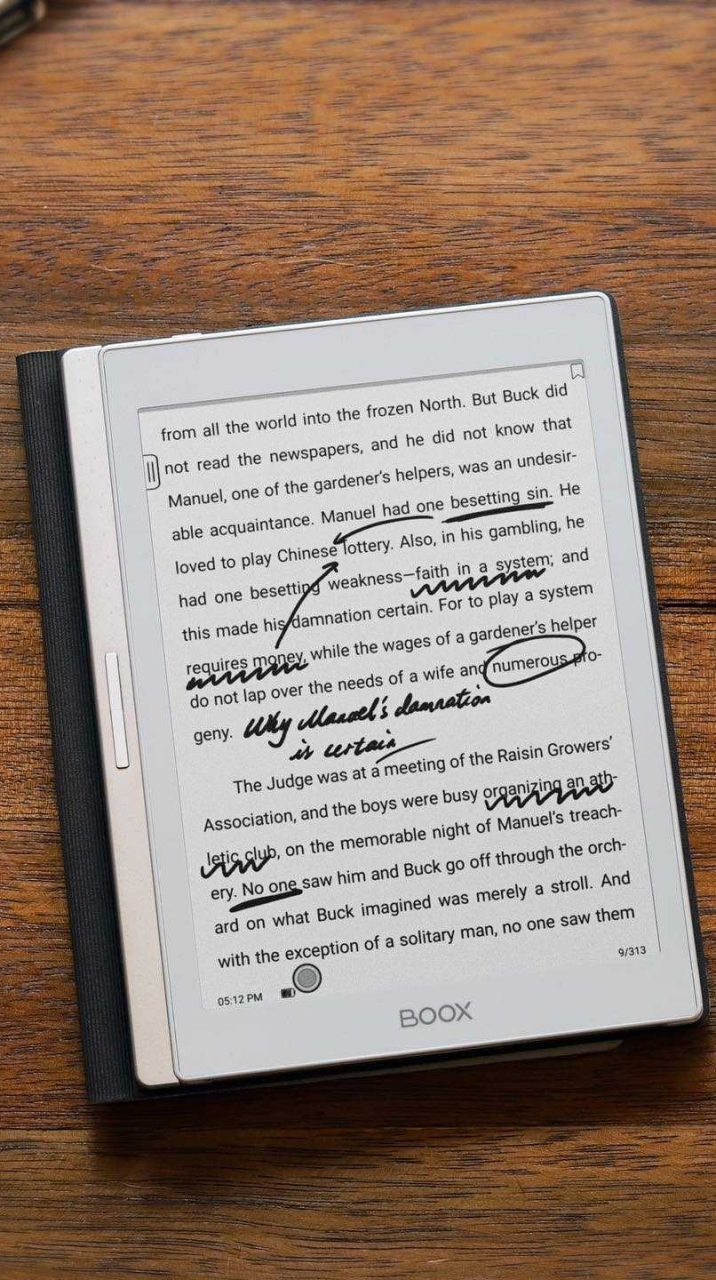 from all the world into the frozen North. But Buck did
not read the newspapers, and he did not know that
Manuel, one of the gardener's helpers, was an undesir-
able acquaintance. Manuel had one besetting sin. He
loved to play Chinese lottery. Also, in his gambling, he
had one besetting weakness—faith in a system; and
this made his damnation certain. For to play a system
requires money, while the wages of a gardener's helper
do not lap over the needs of a wife and numerous pro-
geny.
Why Manuel's damnation
is certain
The Judge was at a meeting of the Raisin Growers'
Association, and the boys were busy organizing an ath-
letic club, on the memorable night of Manuel's treach-
ery. No one saw him and Buck go off through the orch-
ard on what Buck imagined was merely a stroll. And
with the exception of a solitary man, no one saw them
05:12 PM
9/313
BOOX